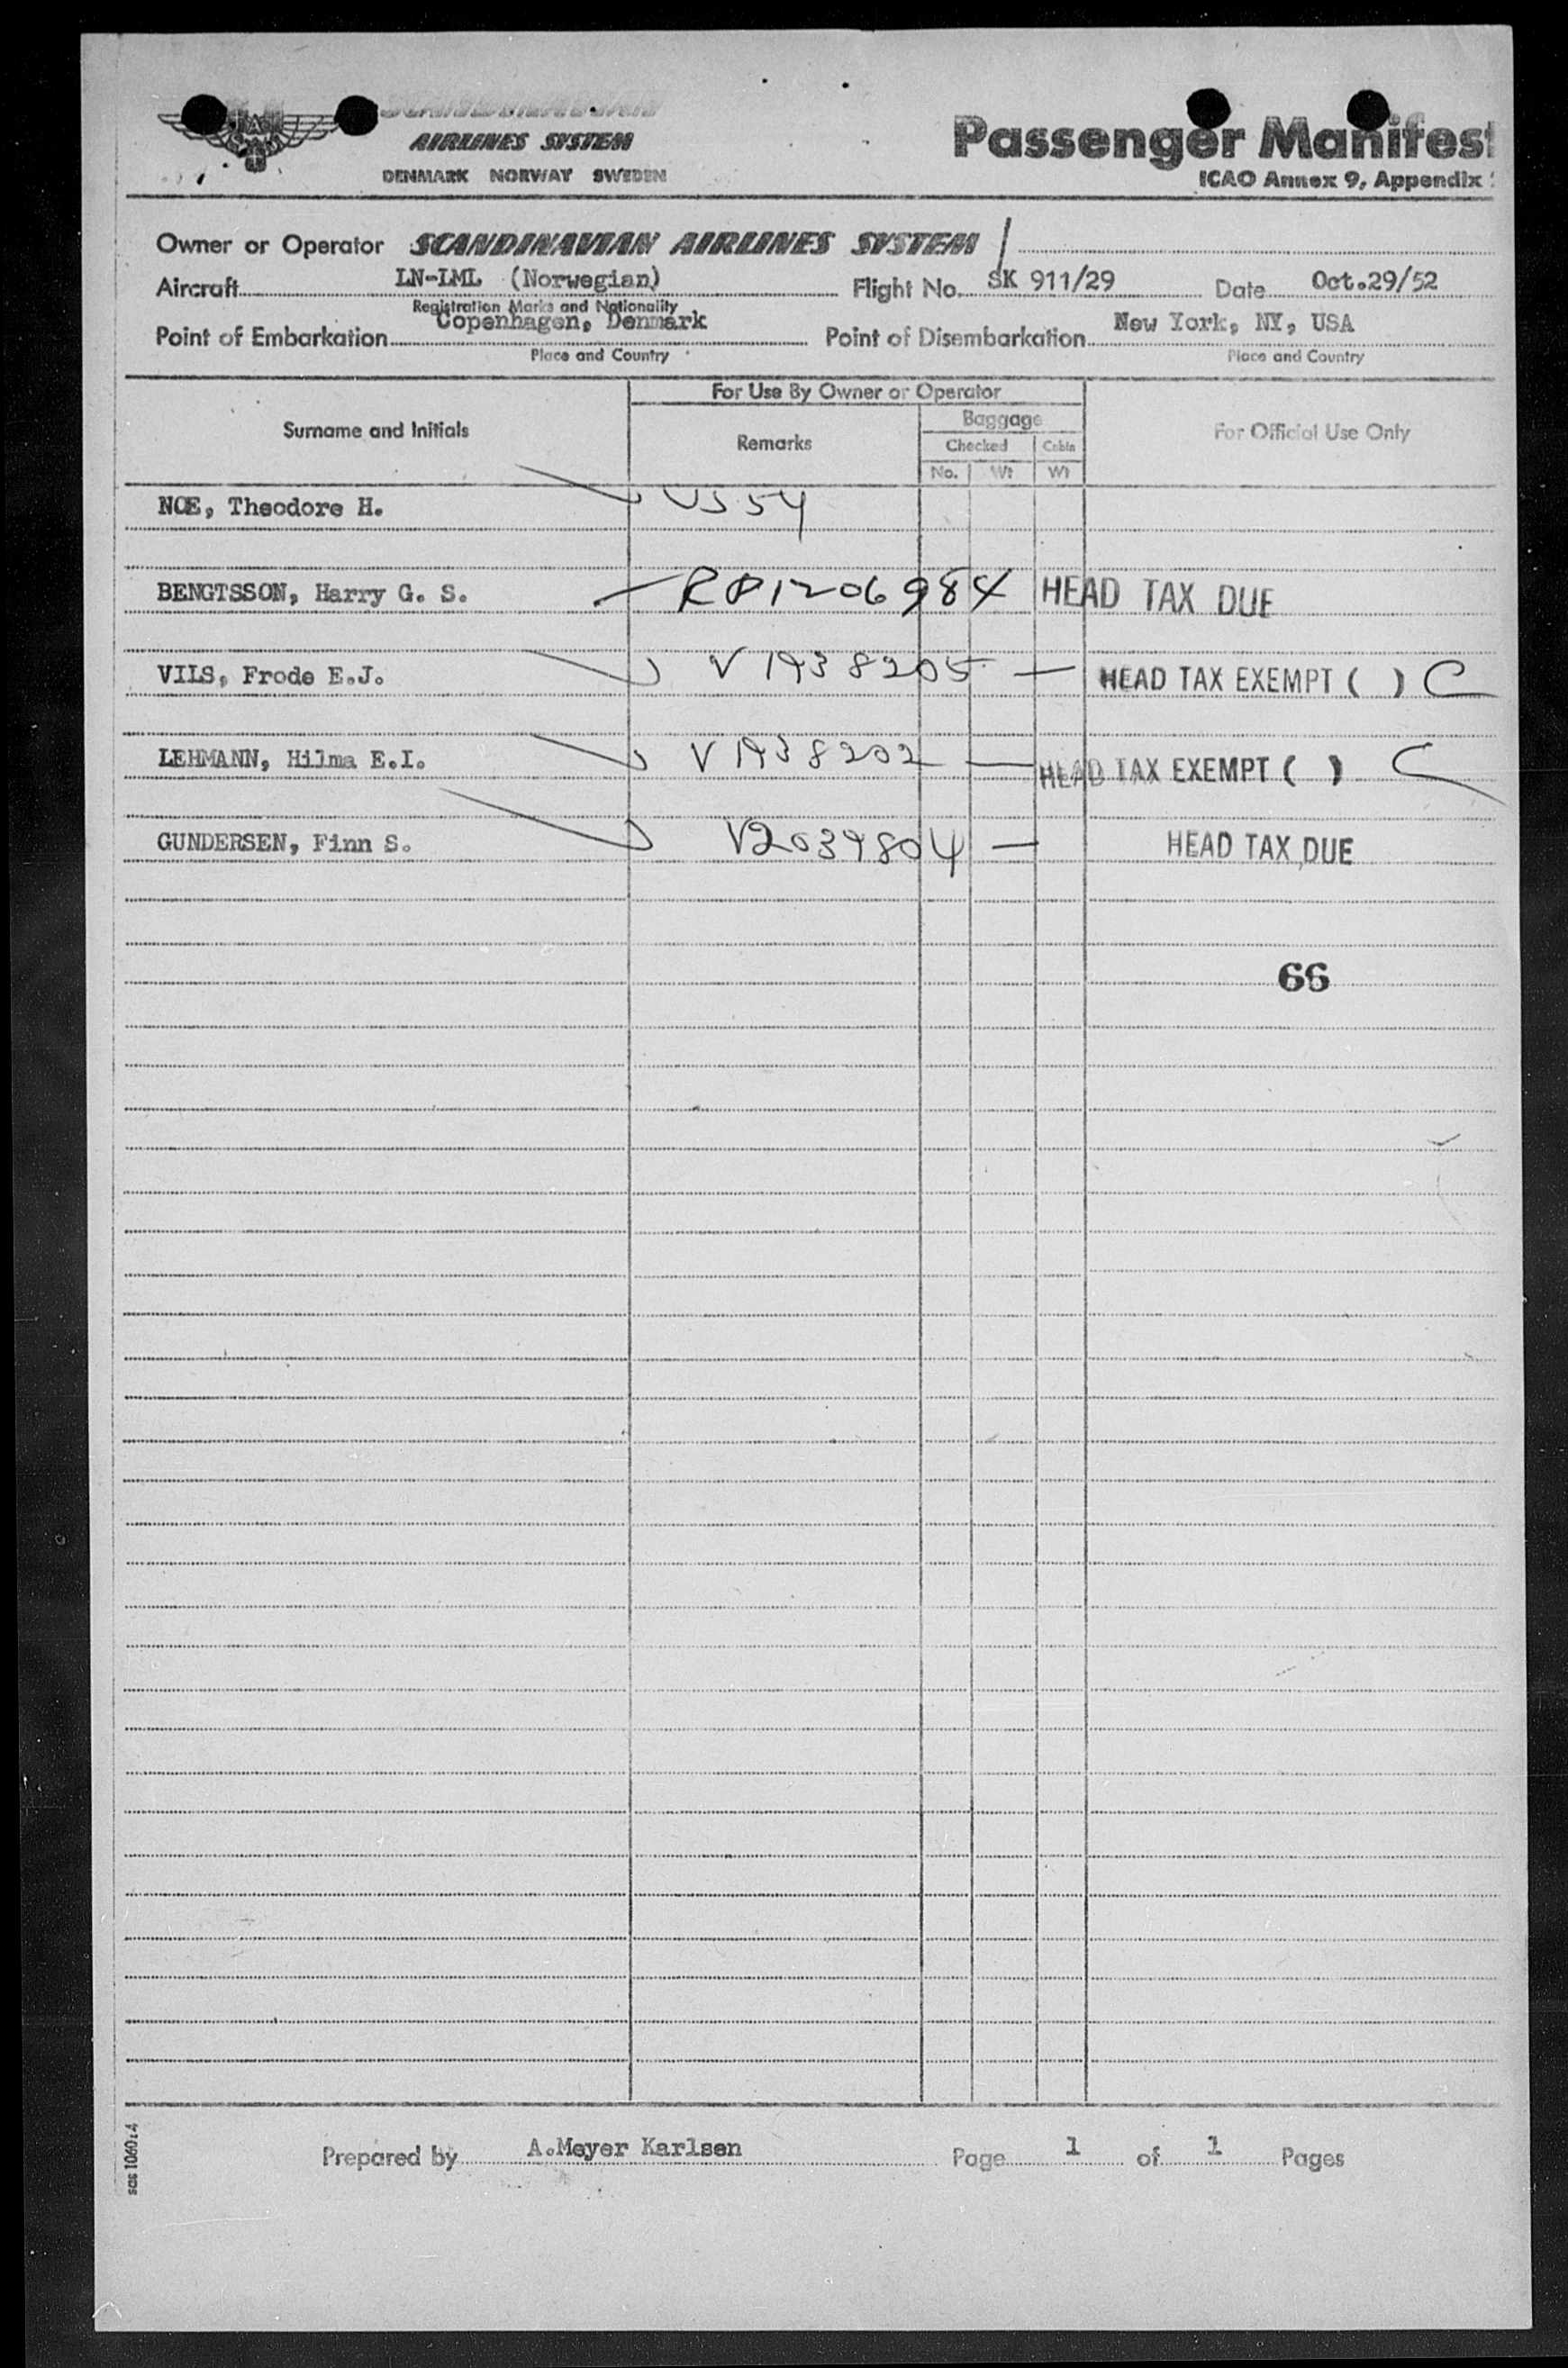 SCANDINAVIAN
AIRLINES SYSTEM
DENMARK NORWAY SWEDEN
Passenger Manifest
ICAO Annex 9, Appendix
Owner or Operator SCANDINAVIAN AIRLINES SYSTEM
Aircraft LN-LML (Norwegian) Flight No. SK 911/29 Date Oct.29/52
Registration Marks and Nationality
Point of Embarkation Copenhagen, Denmark Point of Disembarkation New York, NY, USA
Place and Country Place and Country
For Use By Owner or Operator
Surname and Initials Remarks Baggage For Official Use Only
Checked Cabin
No. Wt Wt
NOE, Theodore H. US 54
BENGTSSON, Harry G. S. RP1206984 HEAD TAX DUE
VILS, Frode E.J. V 1938205 — HEAD TAX EXEMPT ( ) C
LEHMANN, Hilma E.I. V 1938202 — HEAD TAX EXEMPT ( ) C
GUNDERSEN, Finn S. V2039804 — HEAD TAX DUE
66
Prepared by A.Meyer Karlsen Page 1 of 1 Pages
sas 1060:4